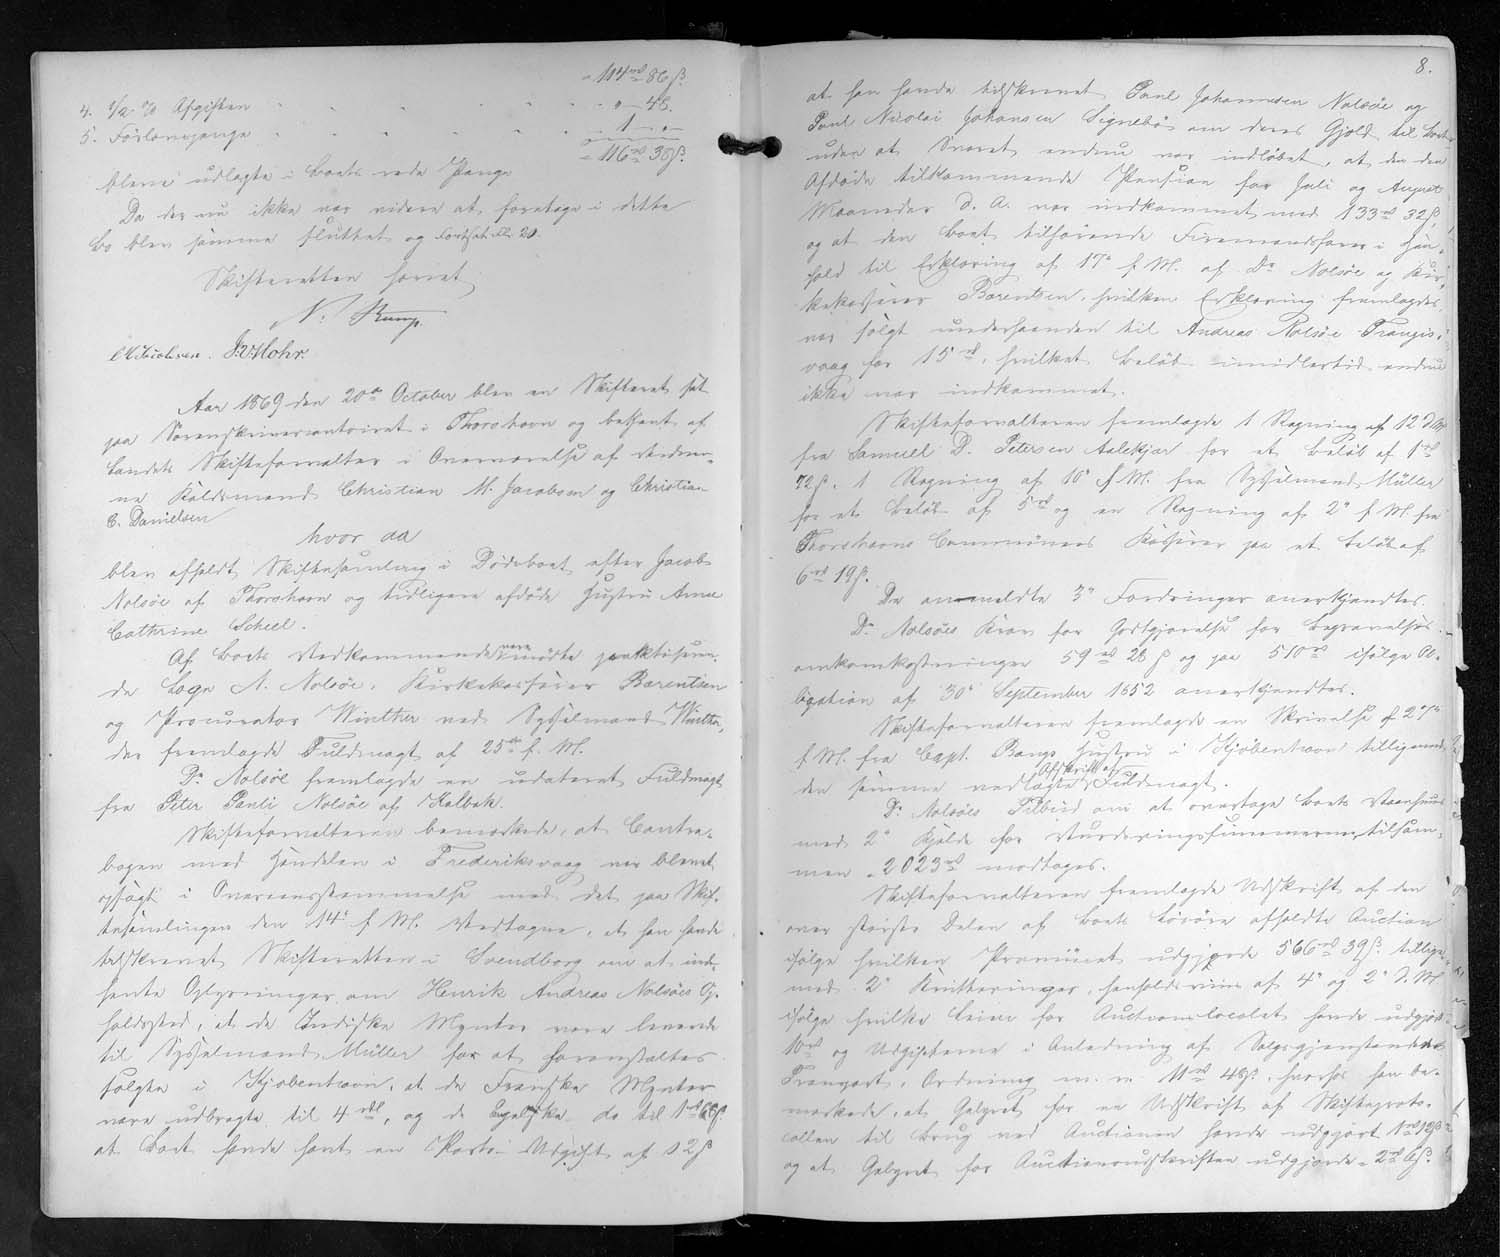 " 114 rd 86 ß.
4. 1/2 % Afgiften " " " " " " - " - 48.
5. Forlovspenge " " " " " - 1 - " -
= 116 rd 38 ß.
bleve udlagte i Boets rede Penge
Da der nu ikke var videre at foretage i dette
Bo blev samme sluttet og Fortsat Fol. 20.
Skifteretten hævet
N. Rump.
CMJacobsen. J. Mohr
Aar 1869 den 20de October blev en Skifteret sat
paa Sorenskrivercontoiret i Thorshavn og betjent af
Landets Skifteforvalter i Overværelse af Vidner-
ne Koldsmand Christian M. Jacobsen og Christian
C. Danielsen
hvor da
blev afholdt Skiftesamling i Dødsboet efter Jacob
Nolsøe af Thorshavn og tidligere afdøde Hustru Anna
Cathrine Scheel.
Af Boets Vedkommende vare mødte praktiseren-
de Læge N. Nolsøe, Kirkekasserer Bærentsen
og Procurator Winther ved Sysselmand Winther,
der fremlagde Fuldmagt af 25de f. M.
Dr. Nolsøe fremlagde en udateret Fuldmagt
fra Peter Pauli Nolsøe af Kalbak.
Skifteforvalteren bemærkede, at Contra-
bogen med Handelen i Frederiksvaag var blevet
opsagt i Overeensstemmelse med det paa Skif-
tesamlingen den 14de f. M. Vedtagne, at han havde
tilskrevet Skifteretten i Svendborg om at ind-
hente Oplysninger om Henrik Andreas Nolsøes Op-
holdssted, at de Indiske Mynter vare leverede
til Sysselmand Müller for at foranstaltes
solgte i Kjøbenhavn, at de Franske Mynter
vare udbragte til 4 rdl, og de Engelske do til 1 rd 68 ß.
at Boet havde havt en Porto Udgift af 12 ß
8.
at han havde tilskrevet Poul Johannesen Nolsøe og
Poul Nicolai Johansen Signebø om deres Gjæld til Boet
uden at Svaret endnu var indløbet, at den den
Afdøde tilkommende Pension for Juli og August
Maaneder d. A. var indkommet med 133 rd 32 ß,
og at den Boet tilhørende Firemandsfarer i Hen-
hold til Erklæring af 17de f. M. af Dr. Nolsøe og Kir-
kekasserer Bærentsen, hvilken Erklæring fremlagdes,
var solgt underhaanden til Andreas Nolsøe Trangis-
vaag for 15 rd, hvilket Beløb imidlertid endnu
ikke var indkommet.
Skifteforvalteren fremlagde 1 Regning af 12 d. M.
fra Samuell D. Petersen Aalekjær for et Beløb af 1 rd
72 ß. 1 Regning af 10de f. M. fra Sysselmand Müller
for et Beløb af 5 rd og en Regning af 2den f. M. fra
Thorshavns Communes Kasserer paa et Beløb af
6 rd 19 ß.
De anmeldte 3de Fordringer anerkjendtes.
Dr. Nolsøes Krav for Godtgjørelse for Begravelses-
omkomkostninger 59 rd 28 ß og paa 510 rd ifølge Ob-
ligation af 30te September 1852 anerkjendtes.
Skifteforvalteren fremlagde en Skrivelse af 27de
f. M. fra Capt. Bangs Hustru i Kjøbenhavn tilligemed
den samme vedlagte Afskrift af Fuldmagt.
Dr. Nolsøes Tilbud om at overtage Boets Vaanhuus
med 2de Kjælde for Vurderingssummerne, tilsam-
men = 2023 rd modtages.
Skifteforvalteren fremlagde Udskrift af den
over største Delen af Boets Løsøre afholdte Auction
ifølge hvilken Provenuet udgjorde 566 rd 39 ß. tillige-
med 2de Kvitteringer, henholdsviis af 4de og 2den d. M.
ifølge hvilke Leien for Auctionslocalet havde udgjort
10 rd og Udgifterne i Anledning af Salgsgjenstandenes
Transport, Ordning m. v. 11 rd 48 ß., hvorhos han be-
mærkede, at Gebyret for en Udskrift af Skifteproto-
collen til Brug ved Auctionen havde udgjort 1 rd 12 ß
og at Gebyret for Auctionsudskriften udgjorde = 2 rd 6 ß.